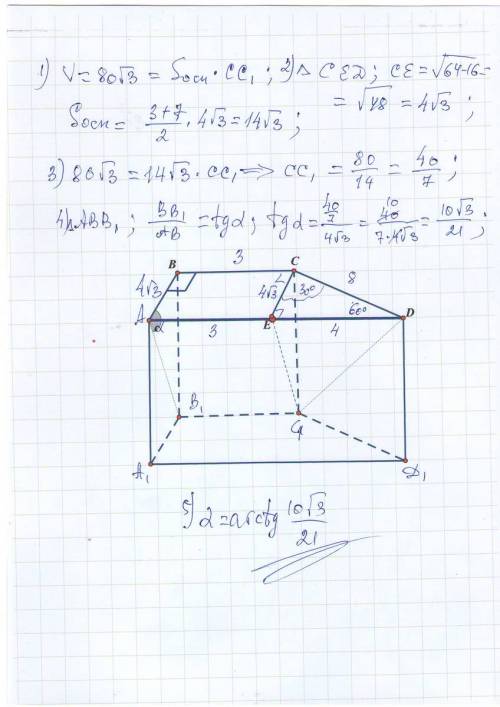 1) V = 80√3 = Sосн · CC₁ ; 2) △ CED ; CE = √64-16 =
= √48 = 4√3 ;
Sосн = 3+7/2 · 4√3 = 14√3 ;
3) 80√3 = 14√3 · CC₁ => CC₁ = 80/14 = 40/7 ;
4) △ABB₁ ; BB₁/AB = tgα ; tgα = 40/7/4√3 = 10 40/7·4√3 = 10√3/21 ;
3
B C
4√3 4√3 30° 8
A α 3 E 60° 4 D
B₁ C₁
A₁ D₁
5) α = arctg 10√3/21